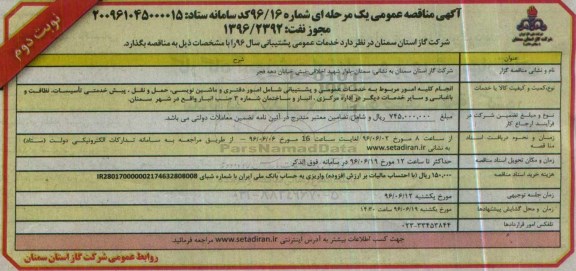 نوبت دوم
آگهی مناقصه عمومی یک مرحله ای شماره ۹۶/۱۶ کد سامانه ستاد: ۲۰۰۹۶۱۰۴۵۰۰۰۰۱۵
مجوز نفت: ۱۳۹۶/۲۳۹۲
شرکت گاز استان سمنان در نظر دارد خدمات عمومی پشتیبانی سال ۹۶ را با مشخصات ذیل به مناقصه بگذارد.
شرکت گاز استان سمنان
عنوان شرح
نام و نشانی مناقصه گزار شرکت گاز استان سمنان به نشانی: سمنان بلوار شهید اخلاقی نبش خیابان دهه فجر
نوع، کمیت و کیفیت کالا یا خدمات انجام کلیه امور مربوط به خدمات عمومی و پشتیبانی شامل امور دفتری و ماشین نویسی، حمل و نقل، پیش خدمتی تأسیسات، نظافت و باغبانی و سایر خدمات دیگر در اداره مرکزی، انبار و ساختمان شماره ۳ جنب انبار واقع در شهر سمنان.
نوع و مبلغ تضمین شرکت در فرآیند ارجاع کار مبلغ ۷۴۵,۰۰۰,۰۰۰ ریال و شامل تضامین معتبر مندرج در آئین نامه تضمین معاملات دولتی می باشد.
زمان و نحوه دریافت اسناد مناقصه از ساعت ۸ مورخ ۹۶/۰۶/۰۲ لغایت ساعت 16 مورخ ۹۶/۰۶/۰۴ از طریق مراجعه به سامانه تدارکات الکترونیکی دولت (ستاد) به نشانی www.setadiran.ir
زمان و مکان تحویل اسناد مناقصه حداکثر تا ساعت ۱۲ مورخ ۹۶/۰۶/۱۹ در سامانه فوق الذکر
هزینه خرید اسناد مناقصه ۱۵۰,۰۰۰ ریال (با احتساب مالیات بر ارزش افزوده) واریزی به حساب بانک ملی ایران با شماره شبای IR280170000002174632808008
زمان جلسه توجیهی مورخ یکشنبه ۹۶/۰۶/۱۲
زمان و محل گشایش پیشنهادها مورخ یکشنبه ۹۶/۰۶/۱۹ ساعت ۱۴:۳۰
تلفکس امور قراردادها ۰۲۳-۳۳۴۵۳۸۴۴
جهت کسب اطلاعات بیشتر به آدرس اینترنتی www.setadiran.ir مراجعه فرمائید.
روابط عمومی شرکت گاز استان سمنان
ParsNamadData
۰۲۱-۸۸۳۴۹۶۷۰-۵